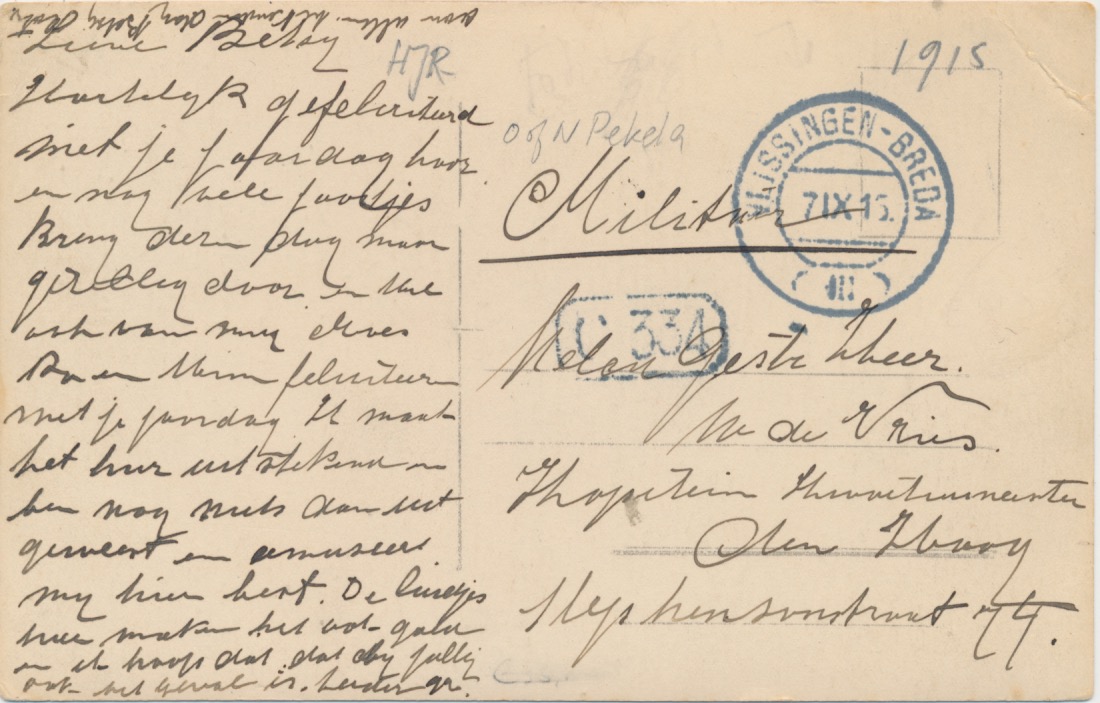 Lieve Betsy
Hartelijk gefeliciteerd
met je jaardag hoor
en nog vele jaartjes
Breng deren dag maar
gezellig door en wil
ook van mij Moes
Pa en Wim feliciteeren
met je jaardag Ik maak
het hier uitstekend en
ben nog niets dan uit
geweest en amuseer
mij hier best. De luidjes
hier maken het ook goed
en ik hoop dat dat bij jullie
ook het geval is. verder gr.
van allen. het zusje
HJR
1915
O of N Pekela
VLISSINGEN-BREDA
7 IX 15.
III
Militair
C 334
Weled Geste Heer.
W de Vries.
Kapitein Kwartiermeester
den Haag
Stephensonstraat